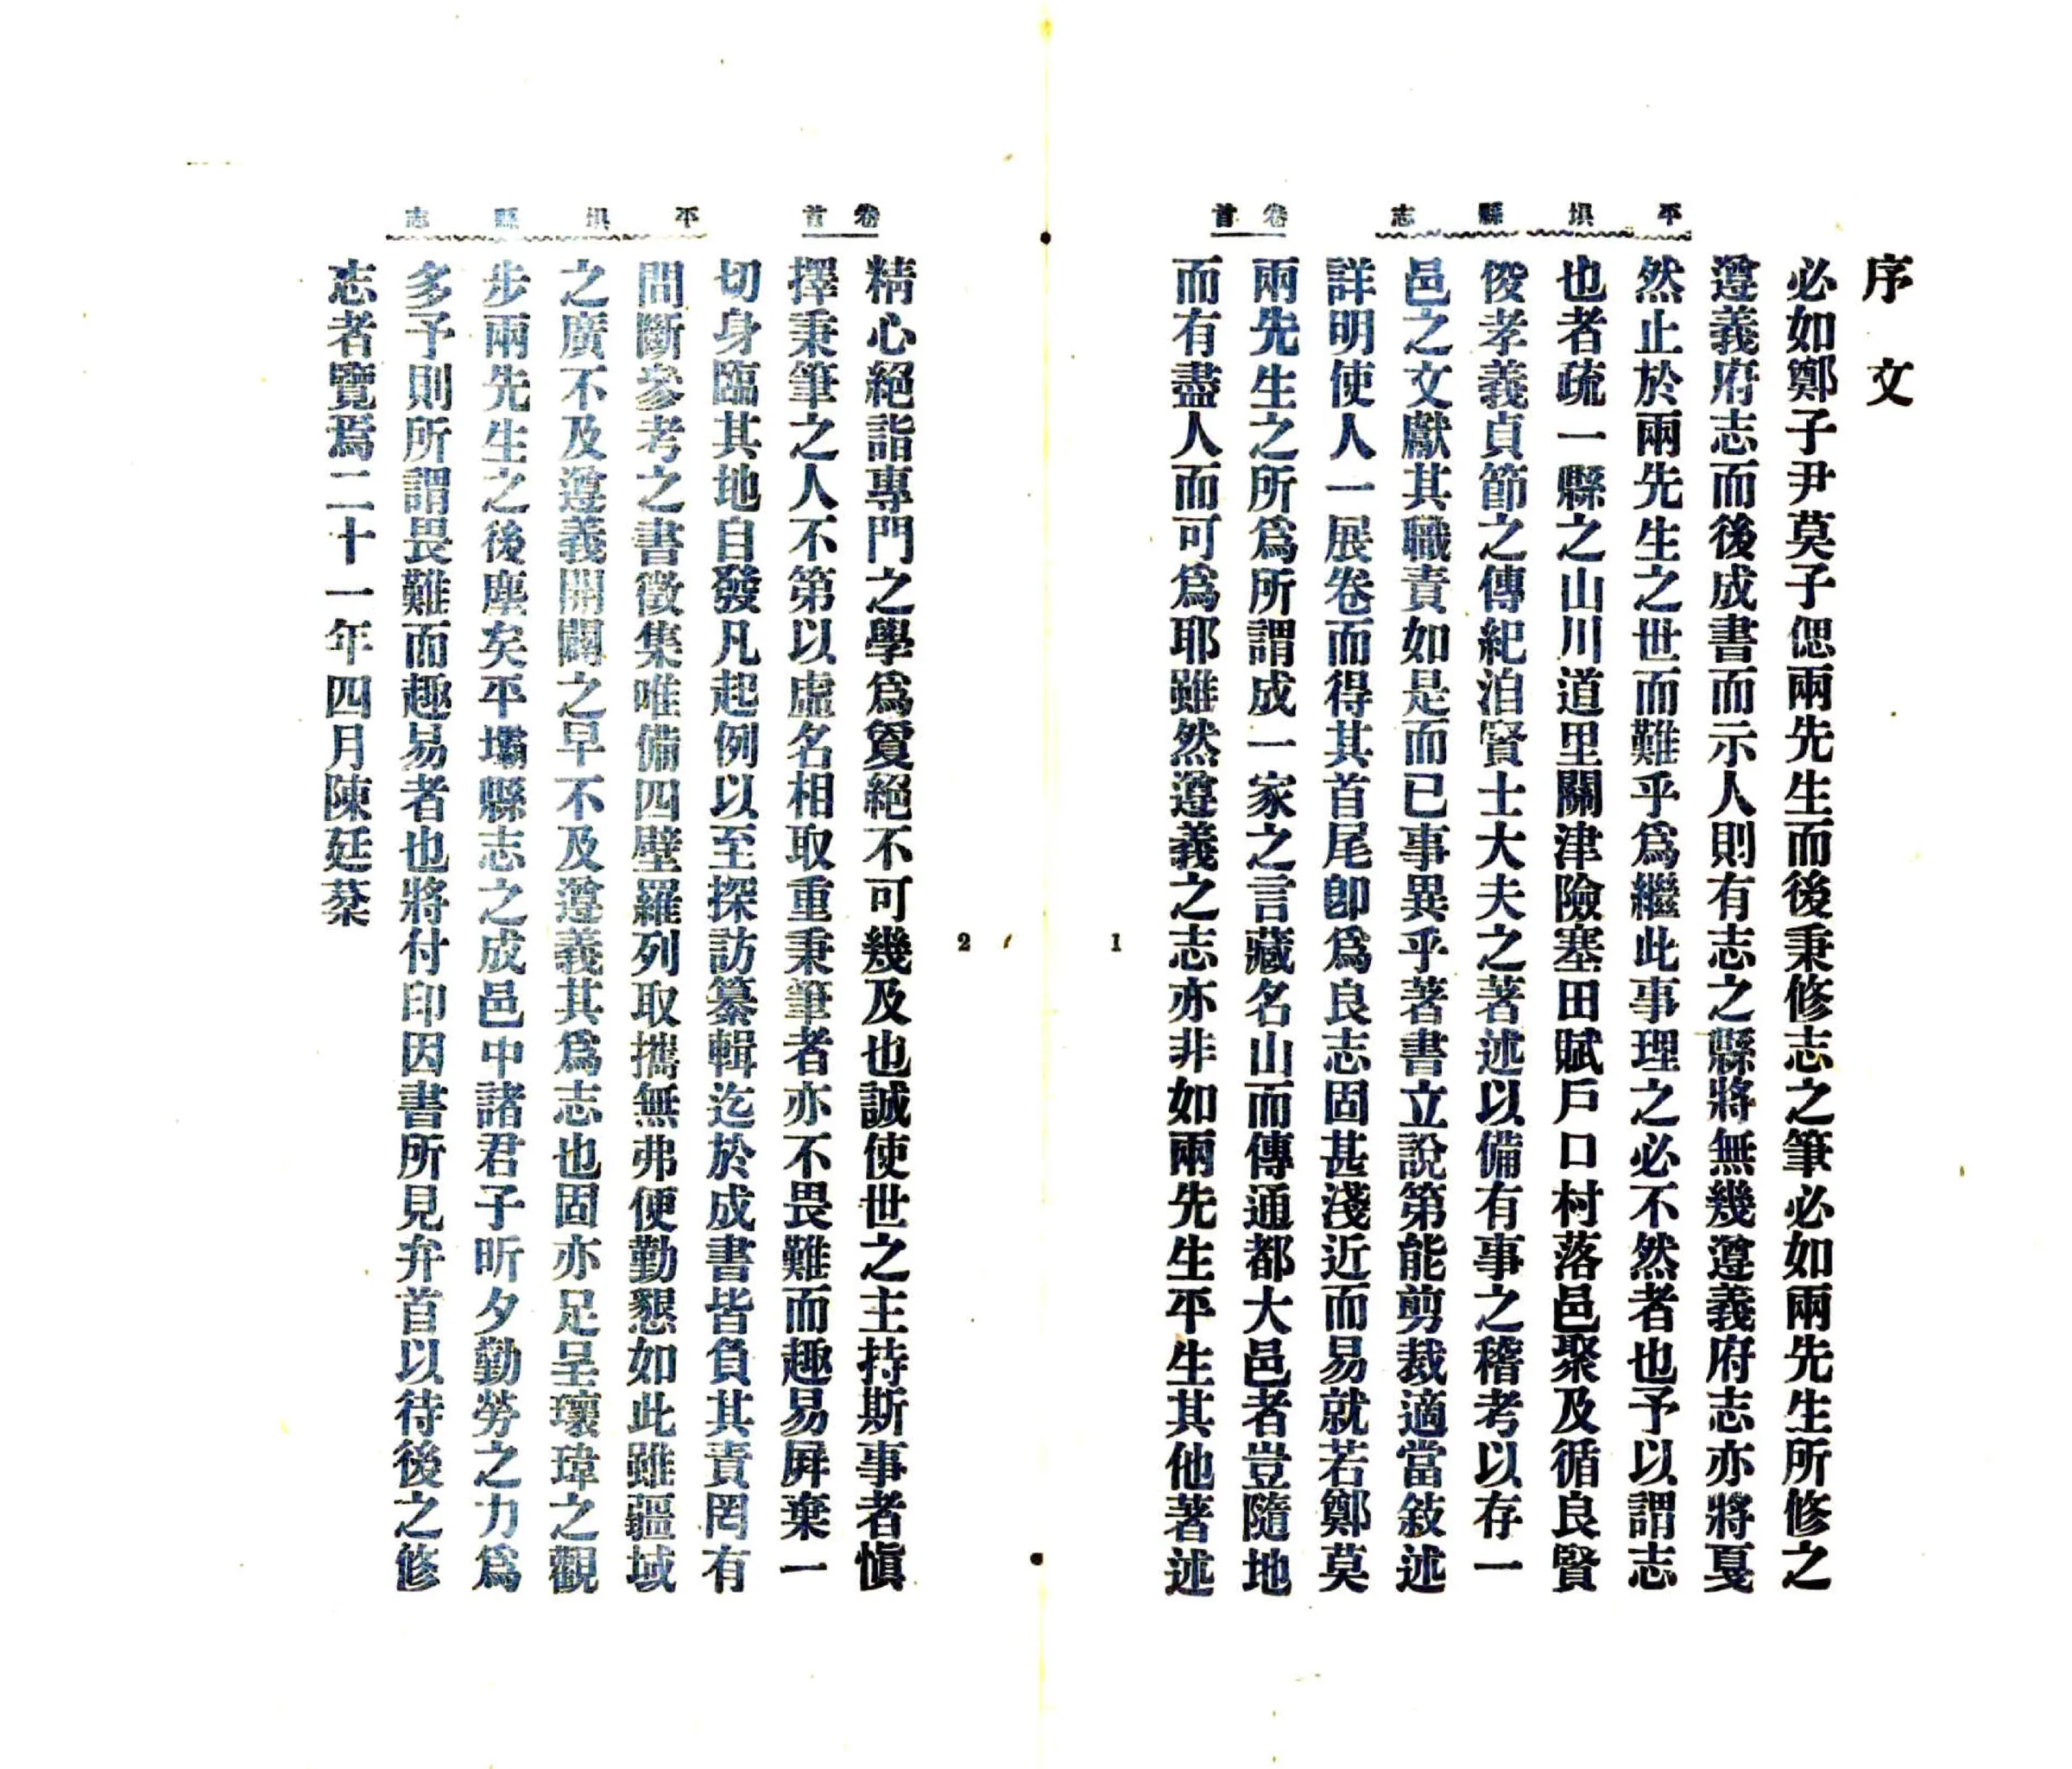 平垻縣志 卷首
序文
必如鄭子尹莫子偲兩先生而後秉修志之筆必如兩先生所修之
遵義府志而後成書而示人則有志之縣將無幾遵義府志亦將戛
然止於兩先生之世而難乎爲繼此事理之必不然者也予以謂志
也者疏一縣之山川道里關津險塞田賦戶口村落邑聚及循良賢
俊孝義貞節之傳紀洎賢士大夫之著述以備有事之稽考以存一
邑之文獻其職責如是而已事異乎著書立說第能剪裁適當敍述
詳明使人一展卷而得其首尾卽爲良志固甚淺近而易就若鄭莫
兩先生之所爲所謂成一家之言藏名山而傳通都大邑者豈隨地
而有盡人而可爲耶雖然遵義之志亦非如兩先生平生其他著述
1
平垻縣志 卷首
精心絕詣專門之學爲敻絕不可幾及也誠使世之主持斯事者愼
擇秉筆之人不第以虛名相取重秉筆者亦不畏難而趣易屛棄一
切身臨其地自發凡起例以至探訪纂輯迄於成書皆負其責罔有
間斷參考之書徵集唯備四壁羅列取攜無弗便勤懇如此雖疆域
之廣不及遵義開闢之早不及遵義其爲志也固亦足呈瓌瑋之觀
步兩先生之後塵矣平壩縣志之成邑中諸君子昕夕勤勞之力爲
多予則所謂畏難而趣易者也將付印因書所見弁首以待後之修
志者覽焉二十一年四月陳廷棻
2